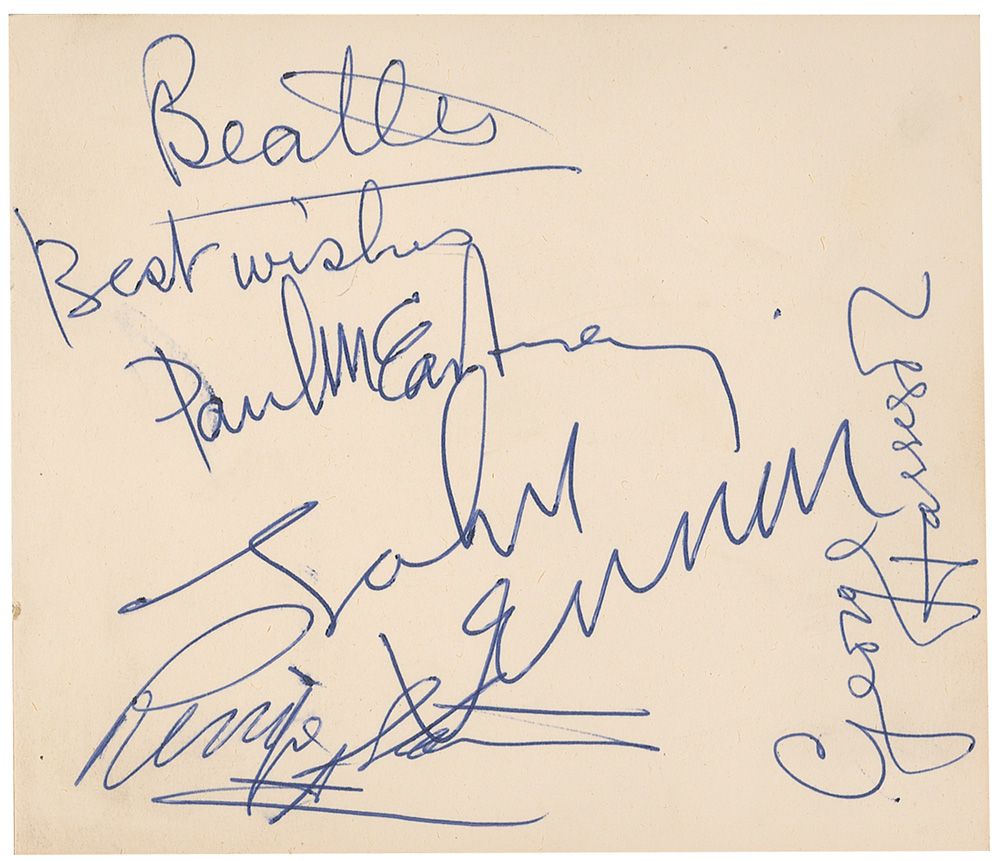 Beatles
Best wishes
Paul McCartney
John Lennon
Ringo Starr
George Harrison